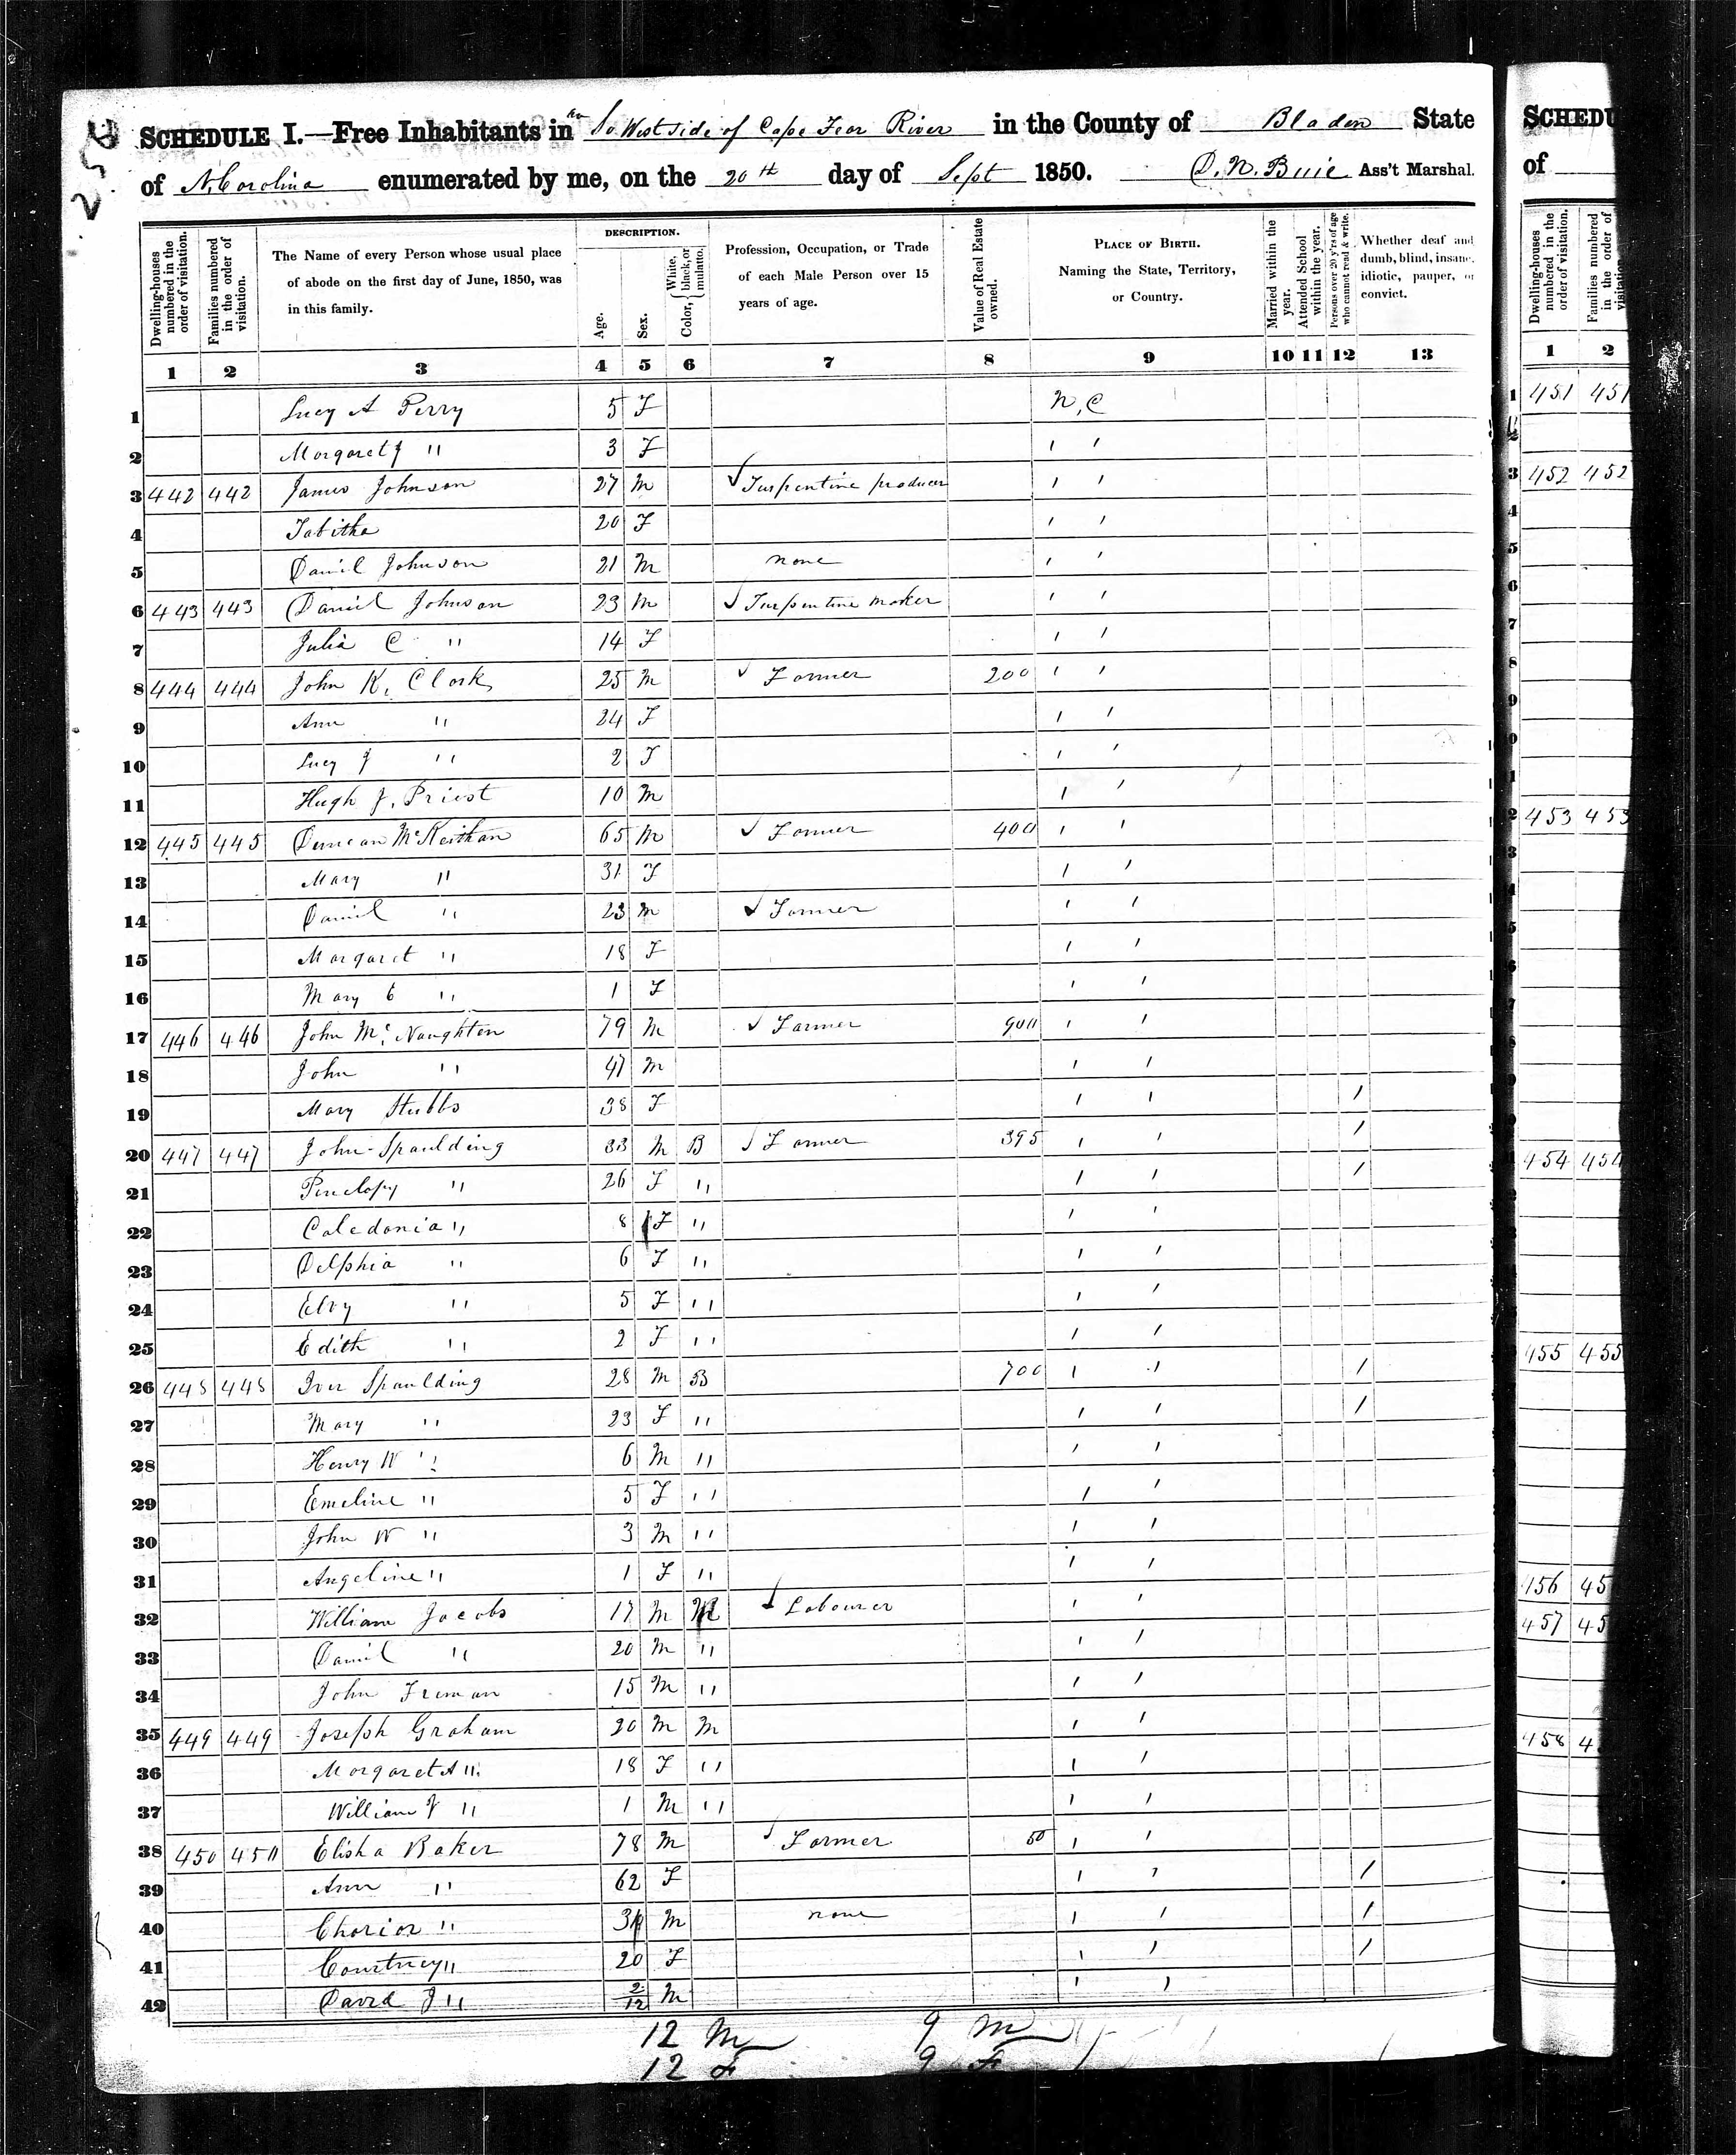 254
SCHEDULE I.—Free Inhabitants in So West side of Cape Fear River in the County of Bladen State
of N. Carolina enumerated by me, on the 20th day of Sept 1850. D. N. Buie Ass't Marshal.
Dwelling-houses numbered in the order of visitation. Families numbered in the order of visitation. The Name of every Person whose usual place of abode on the first day of June, 1850, was in this family. DESCRIPTION. Age. Sex. Color, { White, black, or mulatto. Profession, Occupation, or Trade of each Male Person over 15 years of age. Value of Real Estate owned. PLACE OF BIRTH. Naming the State, Territory, or Country. Married within the year. Attended School within the year. Persons over 20 y'rs of age who cannot read & write. Whether deaf and dumb, blind, insane, idiotic, pauper, or convict.
1 2 3 4 5 6 7 8 9 10 11 12 13
1 Lucy A Perry 5 F N, C
2 Margaret J " 3 F " "
3 442 442 James Johnson 27 M Turpentine producer " "
4 Tabitha 20 F " "
5 Daniel Johnson 21 M none " "
6 443 443 Daniel Johnson 23 M Turpentine maker " "
7 Julia C " 14 F " "
8 444 444 John K. Clark 25 M Farmer 200 " "
9 Ann " 24 F " "
10 Lucy J " 2 F " "
11 Hugh J. Priest 10 M " "
12 445 445 Duncan McKeithan 65 M Farmer 400 " "
13 Mary " 31 F " "
14 Daniel " 23 M Farmer " "
15 Margaret " 18 F " "
16 Mary E " 1 F " "
17 446 446 John McNaughton 79 M Farmer 900 " "
18 John " 47 M " "
19 Mary Stubbs 38 F " " /
20 447 447 John Spaulding 33 M B Farmer 395 " " /
21 Penelopy " 26 F " " " /
22 Caledonia " 8 F " " "
23 Delphia " 6 F " " "
24 " 5 F " " "
25 Edith " 2 F " " "
26 448 448 Iver Spaulding 28 M B 700 " " /
27 Mary " 23 F " " " /
28 Henry W " 6 M " " "
29 Emeline " 5 F " " "
30 John W " 3 M " " "
31 Angeline " 1 F " " "
32 William Jacobs 17 M M Labourer " "
33 Daniel " 20 M " " "
34 John Freman 15 M " " "
35 449 449 Joseph Graham 20 M M " "
36 Margaret A " 18 F " " "
37 William J " 1 M " " "
38 450 450 Elisha Baker 78 M Farmer 50 " "
39 Ann " 62 F " " /
40 " M none " " /
41 Courtney " 20 F " " /
42 David J " 2/12 M " "
12 M 9 M
12 F 9 F
SCHEDU
of
Dwelling-houses numbered in the order of visitation. Families numbered in the order of visitation
1 2
1 451 451
3 452 452
453 453
454 454
455 455
456 45
457 45
458 4